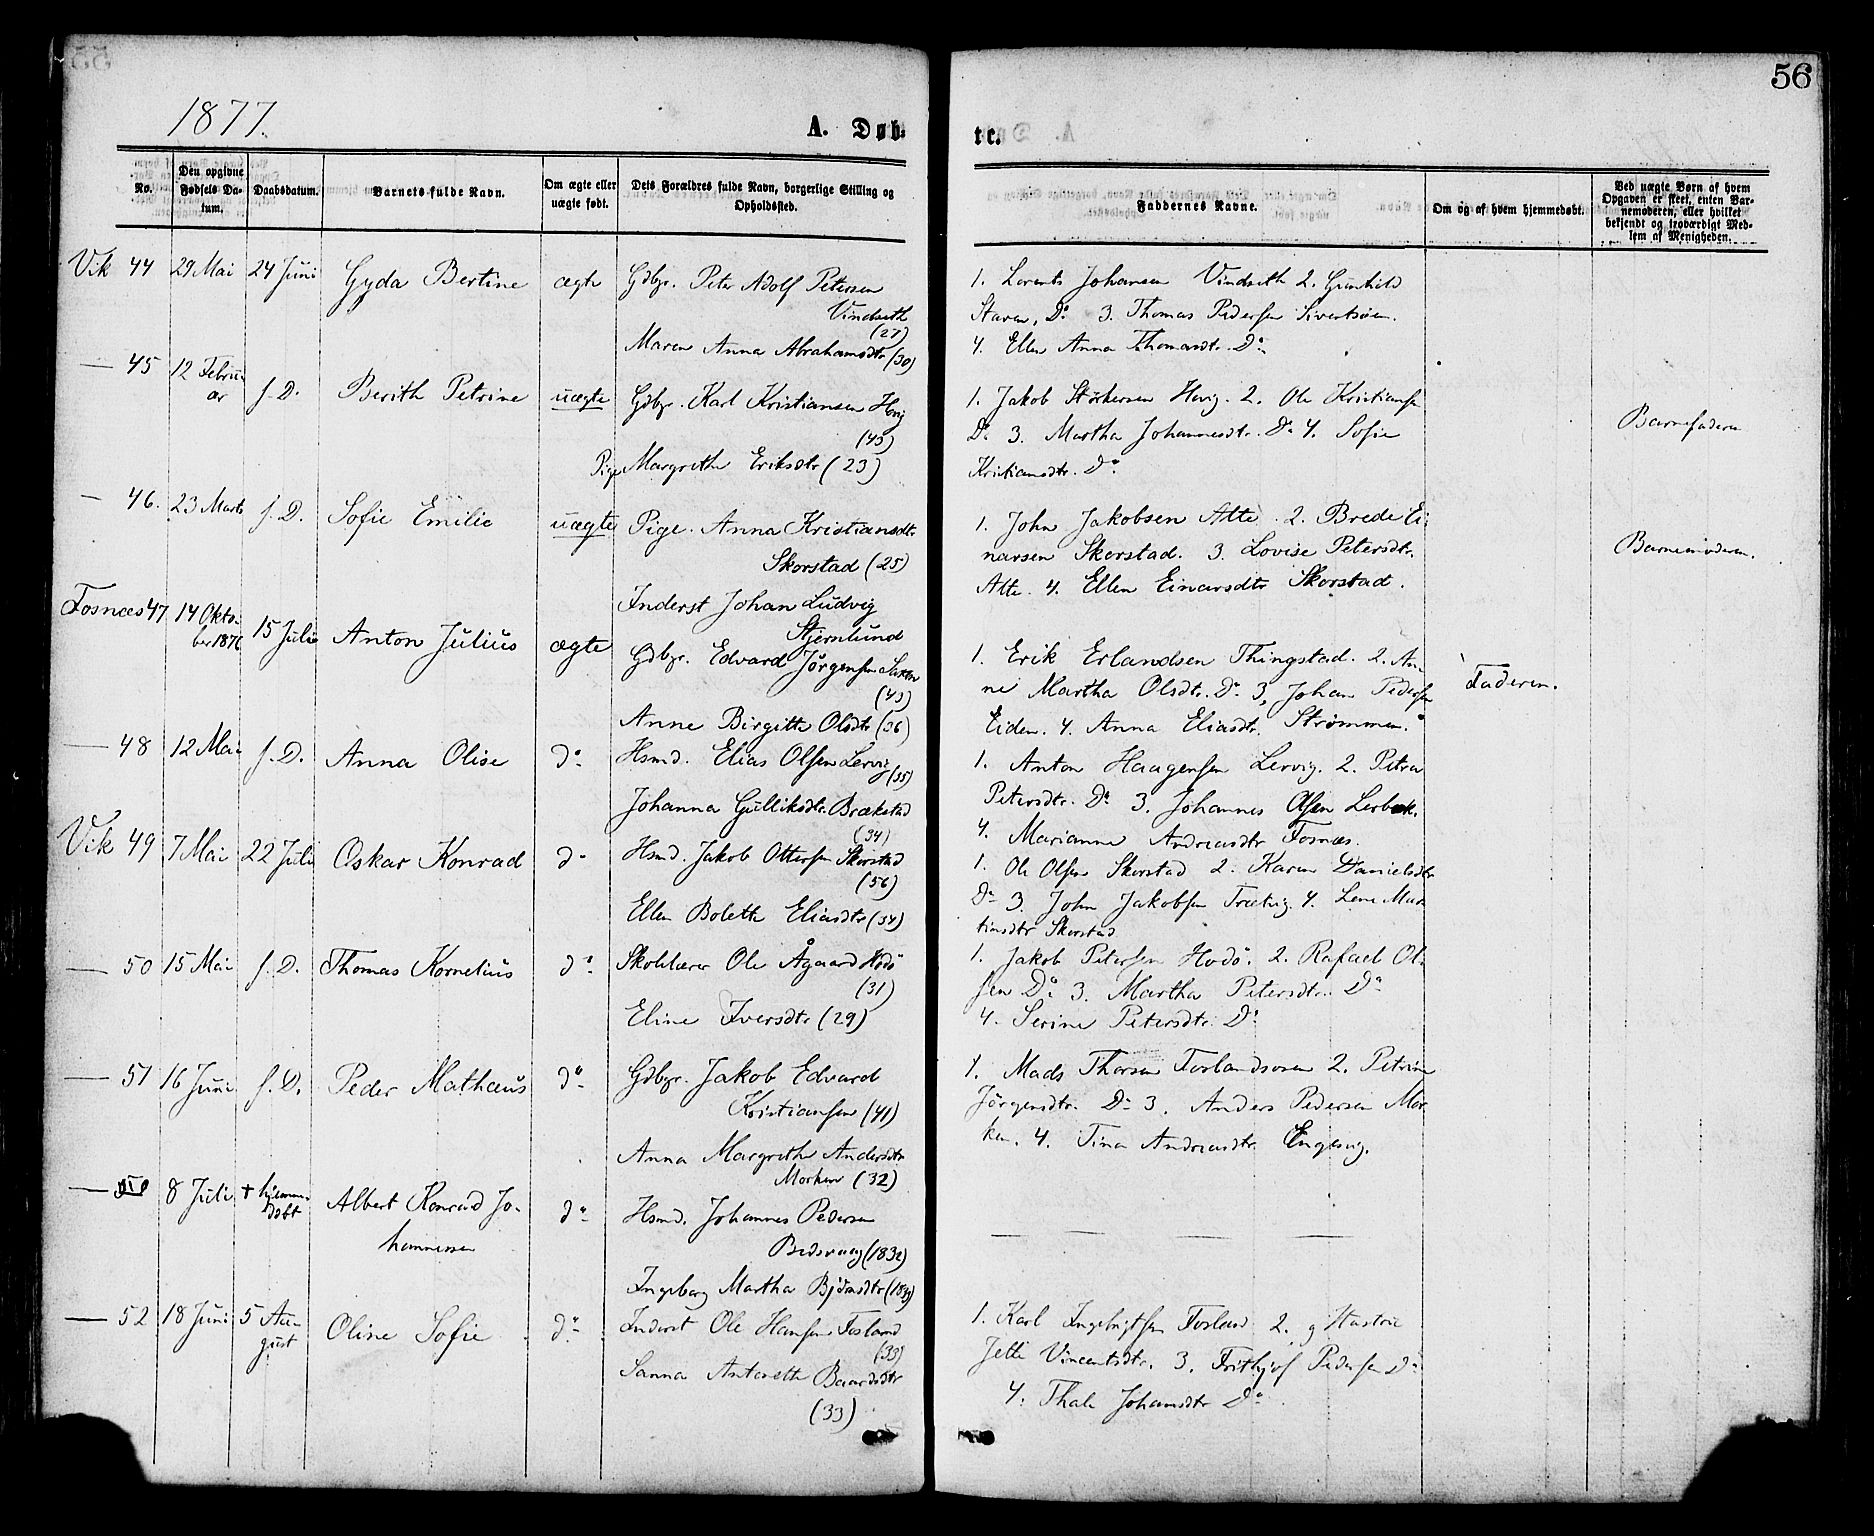 56
1877.
A. Døb-
te.
No.
Den opgivne Fødsels Da-tum.
Daabsdatum.
Barnets fulde Navn.
Om ægte eller uægte født.
Dets Forældres fulde Navn, borgerlige Stilling og Opholdssted.
Faddernes Navne.
Om og af hvem hjemmedøbt.
Ved uægte Børn af hvem Opgaven er skeet, enten Bar-nemoderen, eller hvilket bekjendt og troværdigt Med-lem af Menigheden.
Vik 44 29 Mai 24 Juni Gyda Bertine ægte Gdbgr. Peter Adolf Petersen
Vindseth
(27)
Maren Anna Abrahamsdtr (30)
1. Lorents Johansen Vindseth 2. Gunhild
Staven, Do 3. Thomas Pedersen Sivertsøen.
4. Ellen Anna Thomasdtr. Do
— 45 12 Febru-
ar f. D. Berith Petrine uægte Gdbgr. Karl Kristiansen Hvig
(45)
Pige Margrethe Eriksdtr (23)
1. Jakob Størkersen Hvig. 2. Ole Kristiansen
Do 3. Martha Johannesdtr. Do 4. Sofie
Kristiansdtr. Do
Barnefaderen
— 46. 23 Marts f. D. Sofie Emilie uægte Pige. Anna Kristiansdtr.
Skorstad (25)
1. John Jakobsen Atte. 2. Brede Ei-
narsen Skorstad. 3. Lovise Petersdtr.
Atte. 4. Ellen Einarsdtr Skorstad.
Barnemoderen.
Inderst Johan Ludvig
Stjernlund
Fosnæs 47 14 Okto-
ber 1876 15 Juli Anton Julius ægte Gdbgr. Edvard Jørgensen
(43)
Anne Birgitte Olsdtr (36)
1. Erik Erlandsen Thingstad. 2. An-
ne Martha Olsdtr. Do 3, Johan Pedersen
Eiden. 4. Anna Eliasdtr. Strømmen.
Faderen.
— 48 12 Mai f. D. Anna Olise do Hsmd. Elias Olsen Lervig
(35)
Johanna Gulliksdtr. Brækstad
(34)
1. Anton Haagensen Lervig. 2. Petra
Petersdtr. Do 3. Johannes Olsen Lerbak.
4. Marianne Andreasdtr Fosnæs.
Vik 49 7 Mai 22 Juli Oskar Konrad do Hsmd. Jakob Ottersen Skorstad
(56)
Ellen Bolette Eliasdtr (34)
1. Ole Olsen Skorstad 2. Karen Danielsdtr
Do 3. John Jakobsen 4. Lene Mar-
tinsdtr Skorstad
— 50 15 Mai f. D. Thomas Kornelius do Skolelærer Ole Ågaard Hodø
(31)
Eline Iversdtr (29)
1. Jakob Petersen Hodø. 2. Rafael Ol-
sen Do 3. Martha Petersdtr. Do
4. Serine Petersdtr. Do
— 51 16 Juni f. D. Peder Mathæus do Gdbgr. Jakob Edvard
Kristiansen (41)
Anna Margrethe Andersdtr
Morken (32)
1. Mads Thorsen Foslandsosen 2. Petrine
Jørgensdtr. Do 3. Anders Pedersen Mor-
ken. 4. Tina Andreasdtr Engesvig.
— 8 Juli + hjemme-
døbt Albert Konrad Jo-
hannessen do Hsmd. Johannes Pedersen
(1832)
Ingeborg Martha Bjørnsdtr
— 52 18 Juni 5 Au-
gust Oline Sofie do Inderst Ole Hansen Fosland
(33)
Sanna Antonette Baardsdtr
(33)
1. Karl Ingebrigtsen Fosland 2. og Hustru
Jette Vincentsdtr. 3. Frithjof Pedersen Do
4. Thale Johansdtr Do